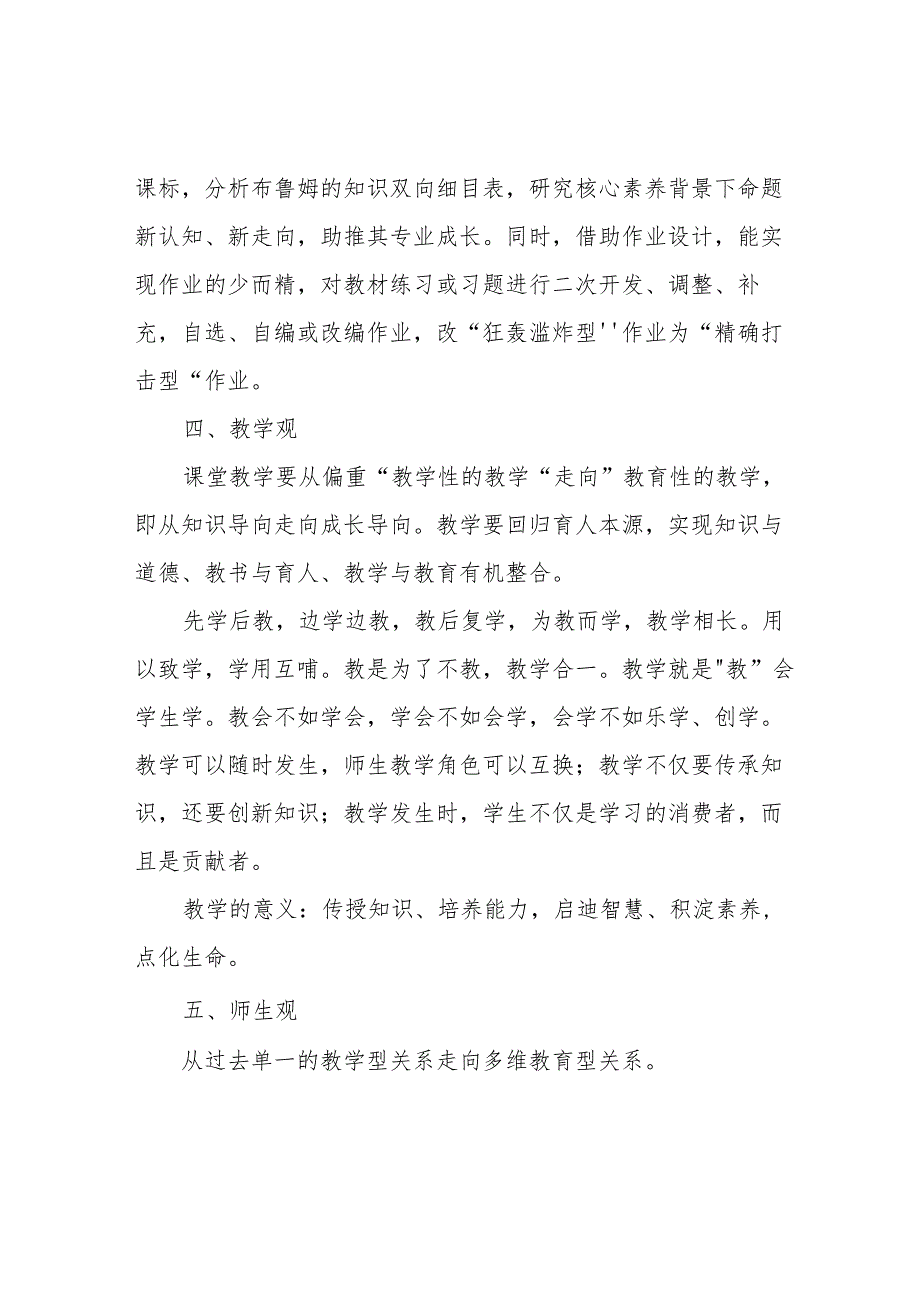 课标，分析布鲁姆的知识双向细目表，研究核心素养背景下命题
新认知、新走向，助推其专业成长。同时，借助作业设计，能实
现作业的少而精，对教材练习或习题进行二次开发、调整、补
充，自选、自编或改编作业，改“狂轰滥炸型''作业为“精确打
击型“作业。
四、教学观
课堂教学要从偏重“教学性的教学“走向”教育性的教学，
即从知识导向走向成长导向。教学要回归育人本源，实现知识与
道德、教书与育人、教学与教育有机整合。
先学后教，边学边教，教后复学，为教而学，教学相长。用
以致学，学用互哺。教是为了不教，教学合一。教学就是"教”会
学生学。教会不如学会，学会不如会学，会学不如乐学、创学。
教学可以随时发生，师生教学角色可以互换；教学不仅要传承知
识，还要创新知识；教学发生时，学生不仅是学习的消费者，而
且是贡献者。
教学的意义：传授知识、培养能力，启迪智慧、积淀素养，
点化生命。
五、师生观
从过去单一的教学型关系走向多维教育型关系。